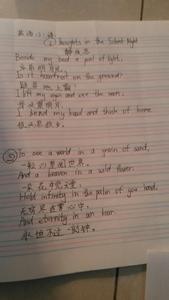 英语小诗
① Thoughts in the Silent Night
静夜思
Beside my bed a pool of light,
床前明月光,
Is it hoarfrost on the ground?
疑是地上霜?
I lift my eyes and see the moon,
举头望明月,
I bend my head and think of home.
低头思故乡。
② To see a world in a grain of sand,
And a heaven in a wild flower.
Hold infinity in the palm of your hand,
And eternity in an hour.